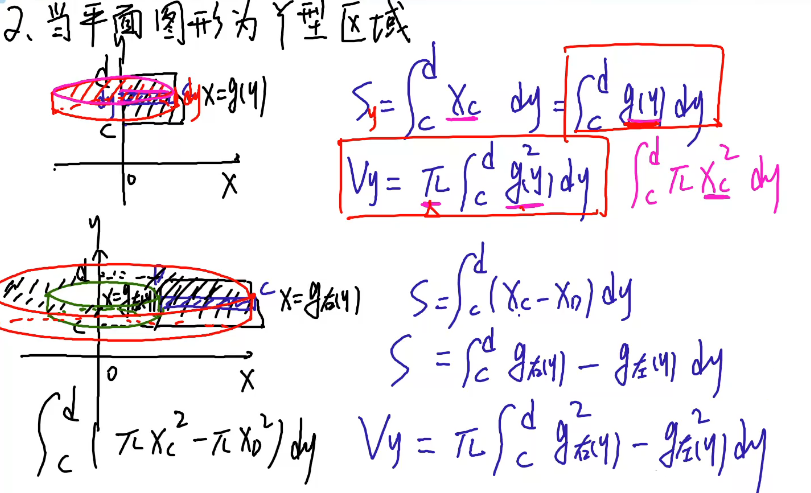 2、当平面图形为Y型区域
y
d
dy x=g(y)
c
0
x
Sy=∫_c^d x_c dy=∫_c^d g(y) dy
Vy=π∫_c^d g²(y) dy ∫_c^d πx_c² dy
y
d
D
C
x=g左(y)
x=g右(y)
c
0
x
S=∫_c^d (x_c-x_D) dy
S=∫_c^d g右(y)-g左(y) dy
∫_c^d (πx_c²-πx_D²) dy
Vy=π∫_c^d g²右(y)-g²左(y) dy